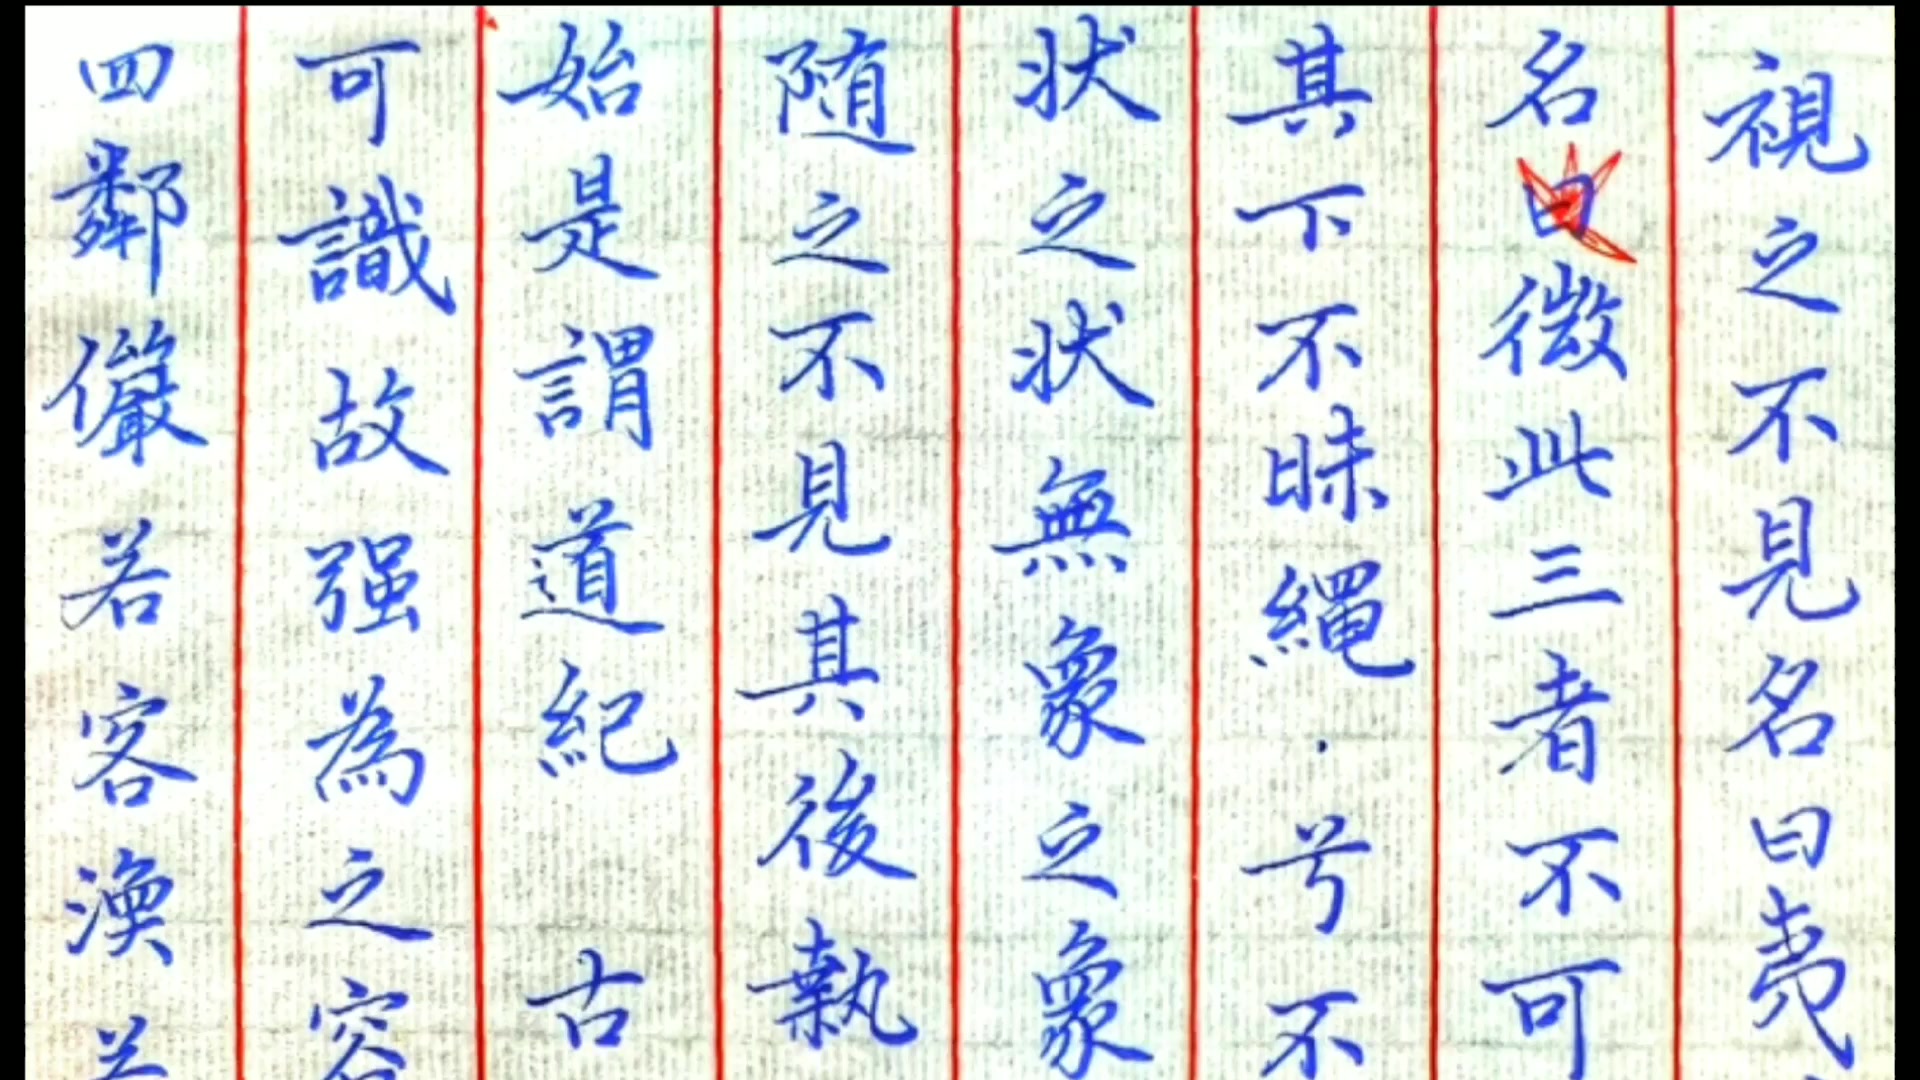 視之不見名曰夷
名曰微此三者不可
其下不昧繩·兮不
状之状無象之象
随之不見其後執
始是謂道紀 古
可識故强為之容
四鄰儼若客渙